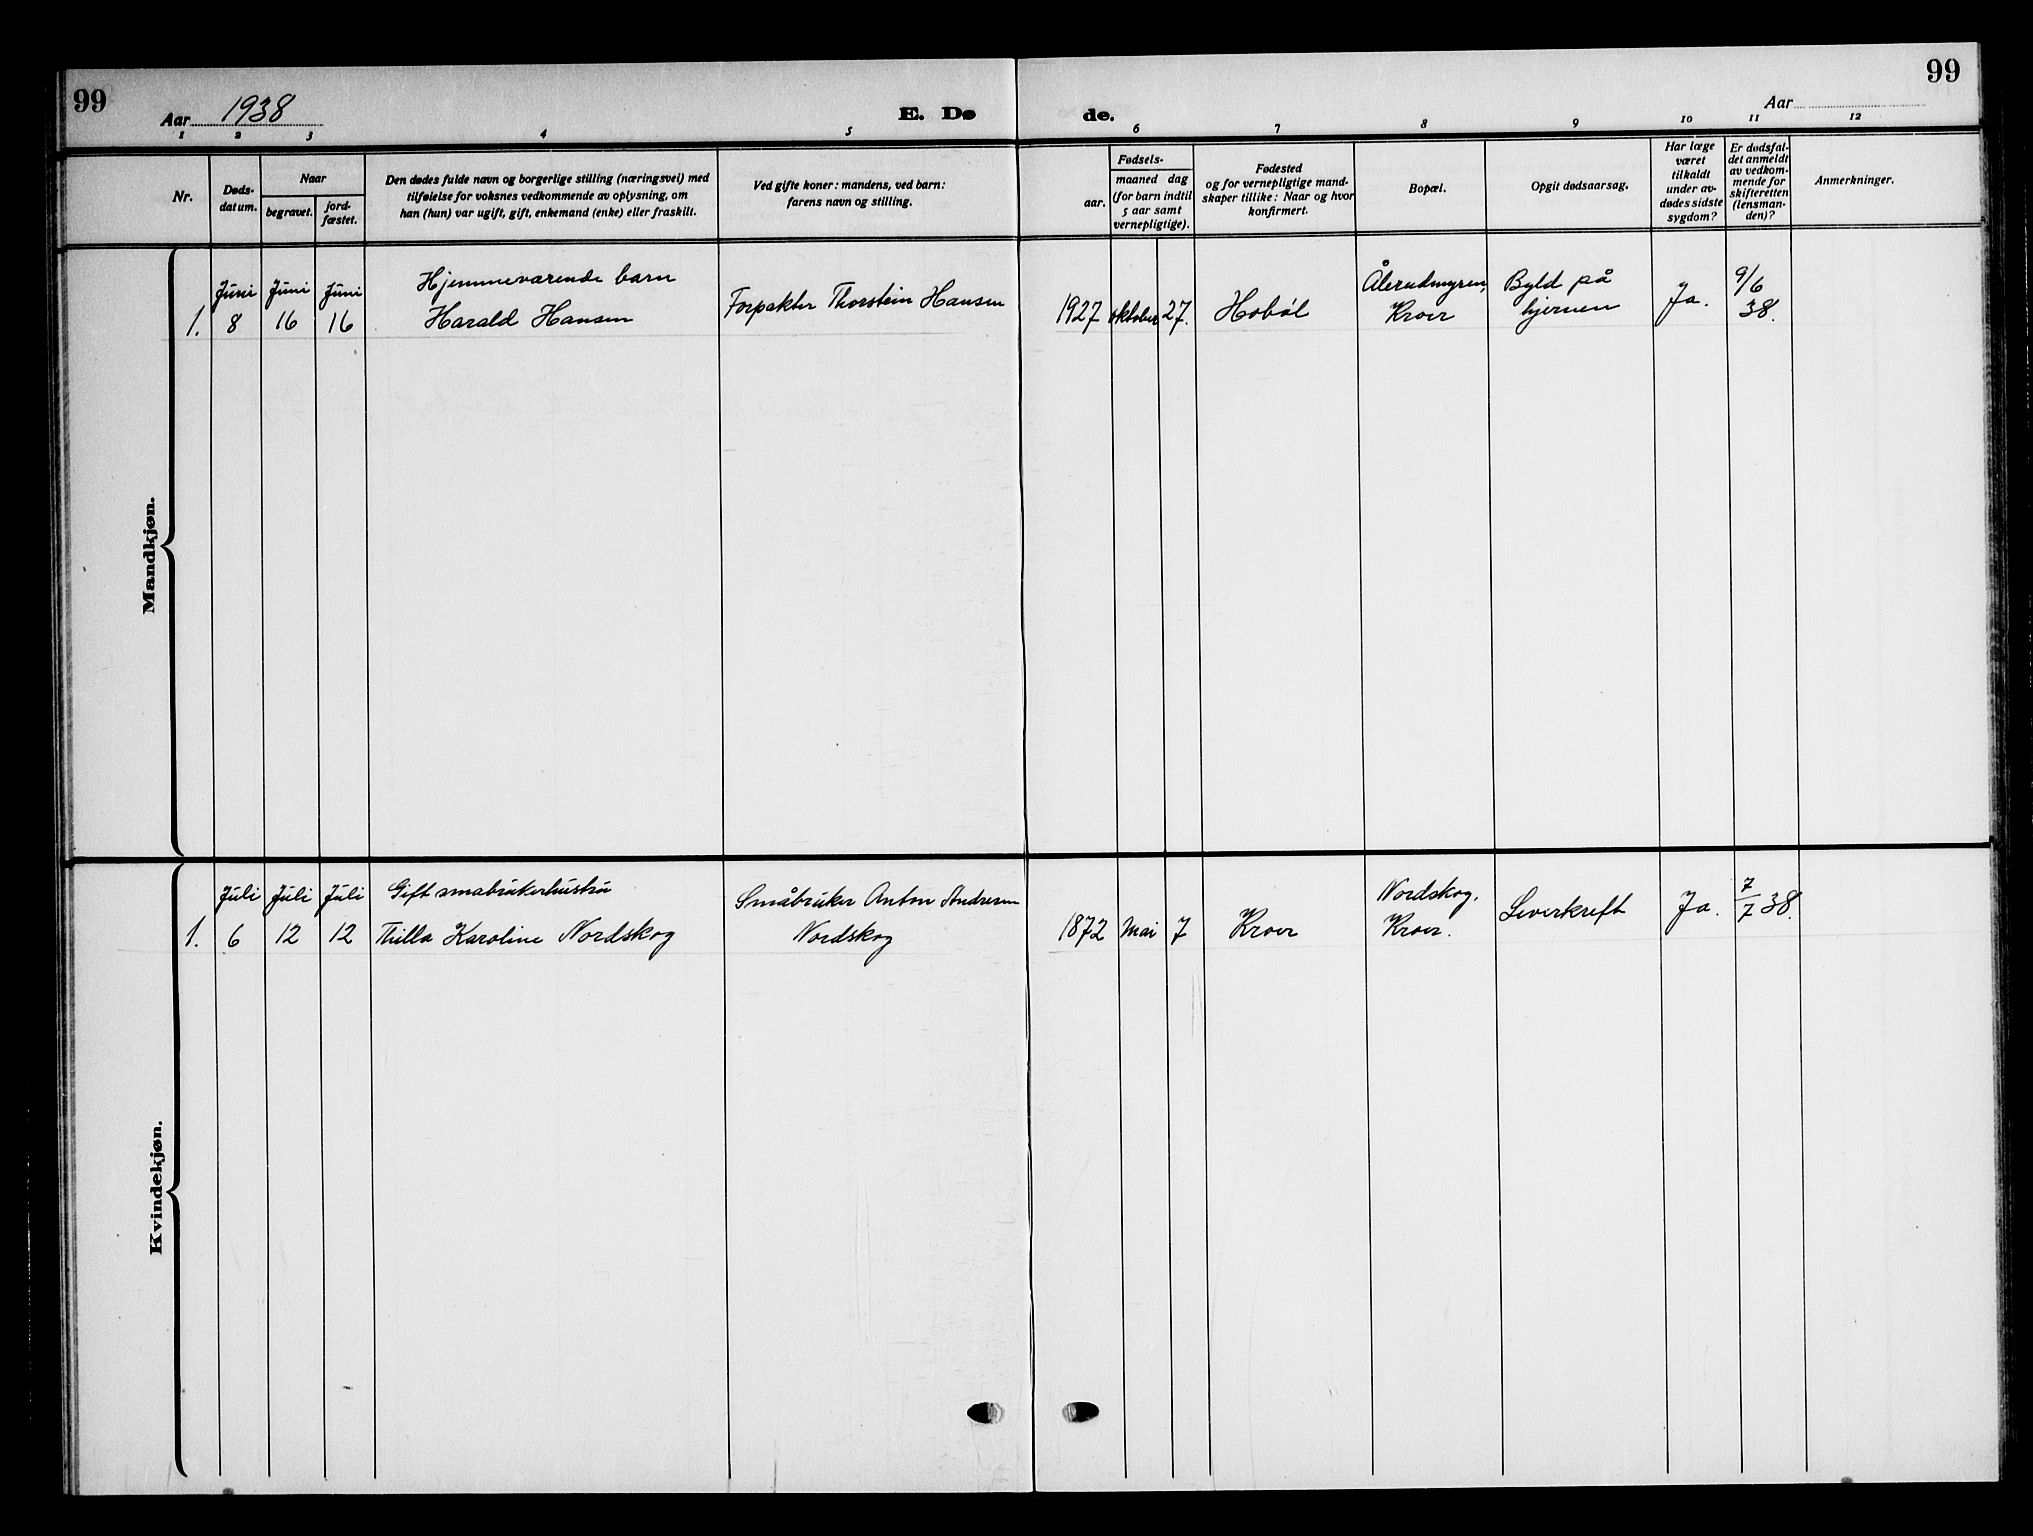 99
Aar 1938
E. Dø
de.
Aar
99
1 2 3 4 5 6 7 8 9 10 11 12
Nr.
Døds-
datum.
Naar
begravet.
jord-
fæstet.
Den dødes fulde navn og borgerlige stilling (næringsvei) med
tilføielse for voksnes vedkommende av oplysning, om
han (hun) var ugift, gift, enkemand (enke) eller fraskilt.
Ved gifte koner: mandens, ved barn:
farens navn og stilling.
Fødsels-
aar.
maaned dag
(for barn indtil
5 aar samt
vernepligtige).
Fødested
og for vernepligtige mand-
skaper tillike: Naar og hvor
konfirmert.
Bopæl.
Opgit dødsaarsag.
Har læge
været
tilkaldt
under av-
dødes sidste
sygdom?
Er dødsfal-
det anmeldt
av vedkom-
mende for
skifteretten
(lensman-
den)?
Anmerkninger.
Mandkjøn.
Juni Juni Juni Hjemmeværende barn Ålerudmyren, Byld på 9/6
1. 8 16 16 Harald Hansen Forpakter Thorstein Hansen 1927 oktober 27. Hobøl Kroer hjernen Ja. 38.
Kvindekjøn.
Juli Juli Juli Gift småbrukerhustru Småbruker Anton Andersen Nordskog, 7
1. 6 12 12 Thilla Karoline Nordskog Nordskog 1872 Mai 7 Kroer Kroer. Leverkreft Ja. 7 38.